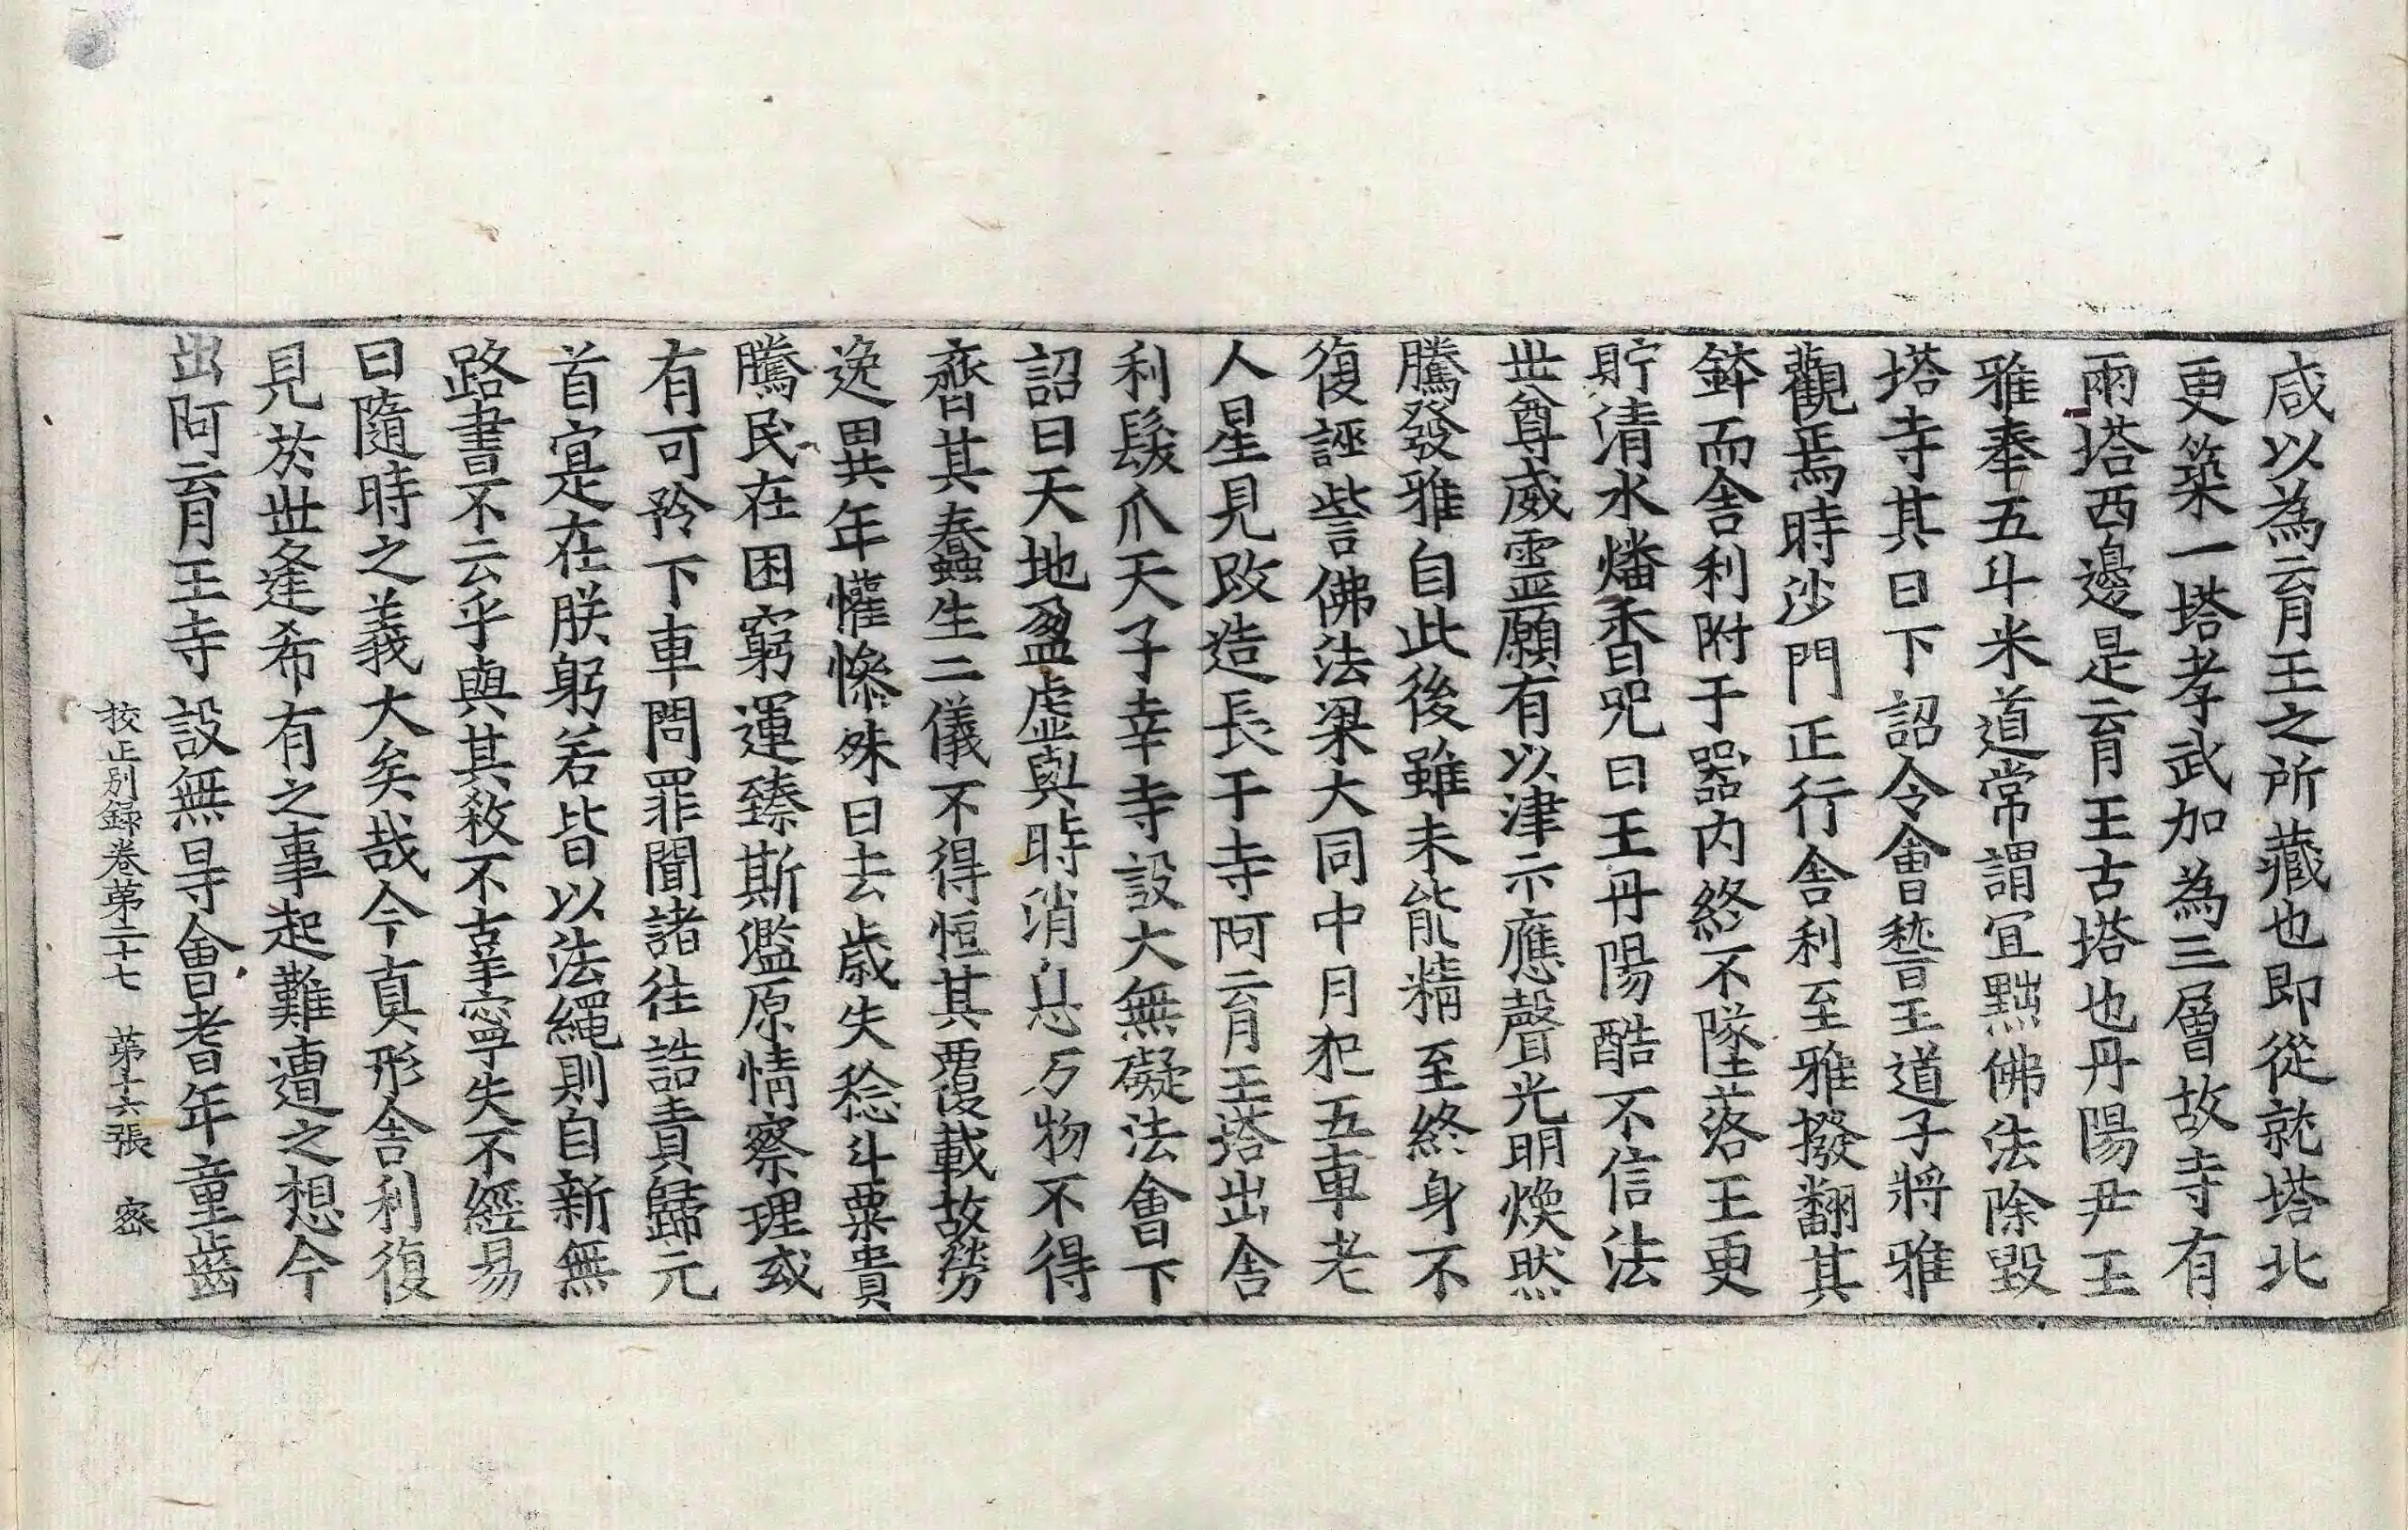 咸以為育王之所藏也即從就塔北
更築一塔孝武加為三層故寺有
兩塔西邊是育王古塔也丹陽尹王
雅奉五斗米道常謂冝黜佛法除毀
塔寺其日下詔令會嵇王道子將雅
觀焉時沙門正行舎利至雅撥翻其
鉢而舎利附于器内終不墜落王更
貯清水燔香呪曰王丹陽酷不信法
世尊威靈願有以津示應聲光明煥然
騰發雅自此後雖未能精至終身不
復誣訾佛法梁大同中月犯五車老
人星見改造長干寺阿育王塔出舎
利髮爪天子幸寺設大無礙法會下
詔曰天地盈虛與時消息万物不得
齊其蠢生二儀不得恒其覆載故勞
逸異年懽慘殊日去歲失稔斗粟貴
騰民在困窮運臻斯濫原情察理或
有可矜下車問罪聞諸往誥責歸元
首寔在朕躬若皆以法繩則自新無
路書不云乎與其殺不辜寧失不經易
曰隨時之義大矣哉今真形舎利復
見於世逢希有之事起難遭之想今
出阿育王寺設無㝵會耆年童齒
挍正別録卷苐二十七　苐十六張　宻